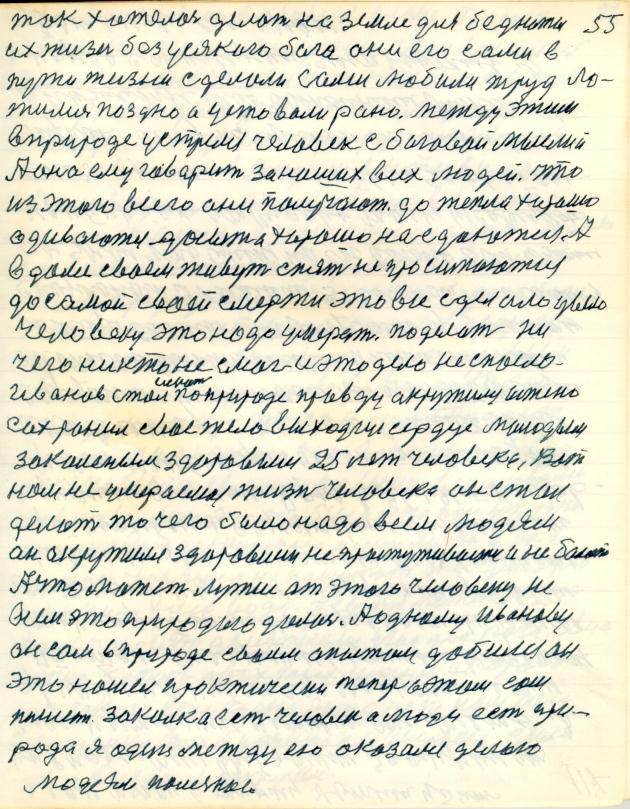 так хотелося делат на земле для бедноты 55
их жизн без усякого бога они его сами в
пути жизни сделали сами любили труд ло-
жился поздно а уставали рано. между этим
в природе устрел человек с боговой мыслий
А она ему гаварит за наших всих людей. что
из этого всего они получают. до тепла хорошо
одиваются досыта хорошо наедаются. А
в доми своем живут спят не просипаются
до самой своей смерти это все сделало цело
человеку это надо умерат. поделат ни
чего никто не смог и это дело неспасло-
Иванов стал искат по природе правду акружил
сохранил свое тело выходил сердце молодым
закаленым здоровым 25 лет человека, Вот
ном не умераемая жизн человека он стал
делат то чего было надо всем людям
он акружил здоровим не простуживатся и не болет
А что может лутше от этого человеку не
всем это природого делая. А одному Иванову
он сам в природе своим опытом добился он
это нашел практически тепер в этом сам
пишет. закалка ест человек а люди ест при-
рода я один между ею оказали делаю
людям полезное.